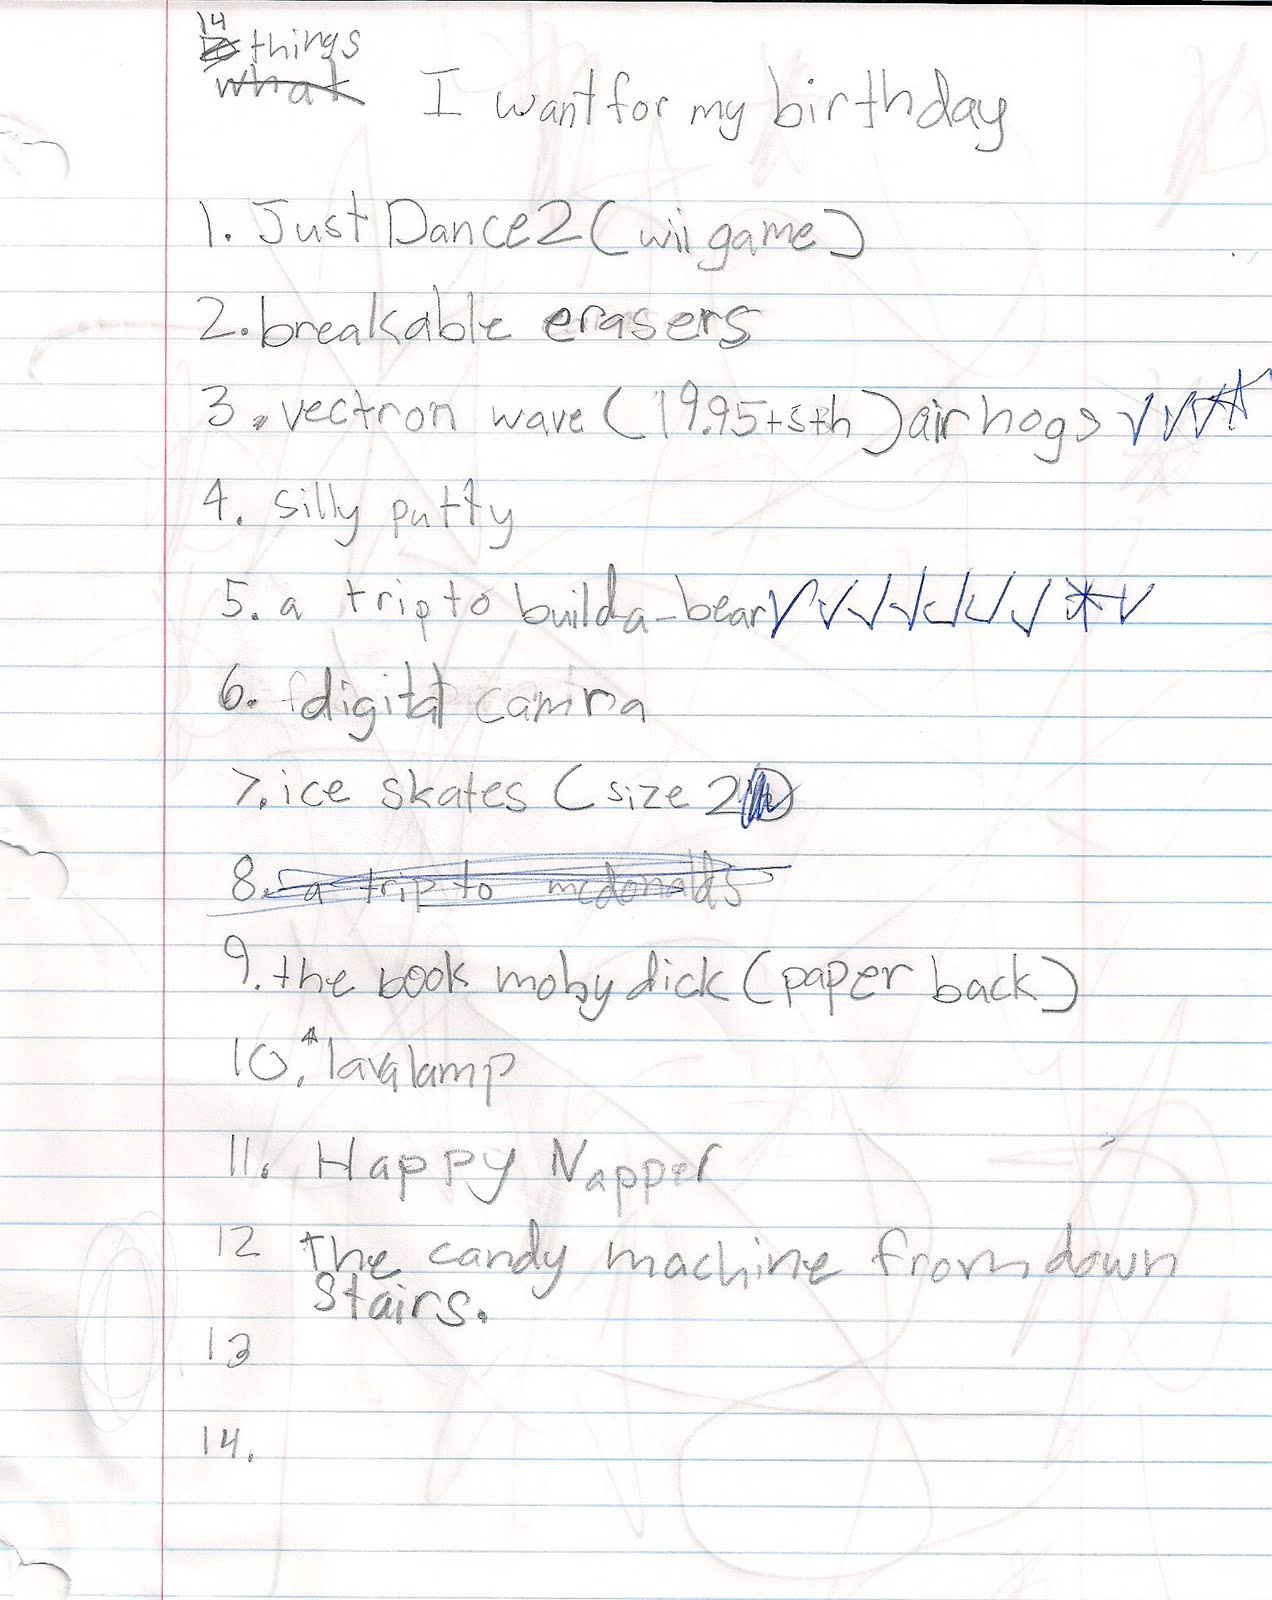 14 things
what I want for my birthday
1. Just Dance 2 (wii game)
2. breakable erasers
3. vectron wave (19.95+s+h) air hogs √√√*
4. silly putty
5. a trip to build-a-bear √√√√√√√*√
6. digital camra
7. ice skates (size 2)
8. a trip to mcdonalds
9. the book moby dick (paper back)
10. *lava lamp
11. Happy Napper
12 the candy machine from down
Stairs.
13
14.